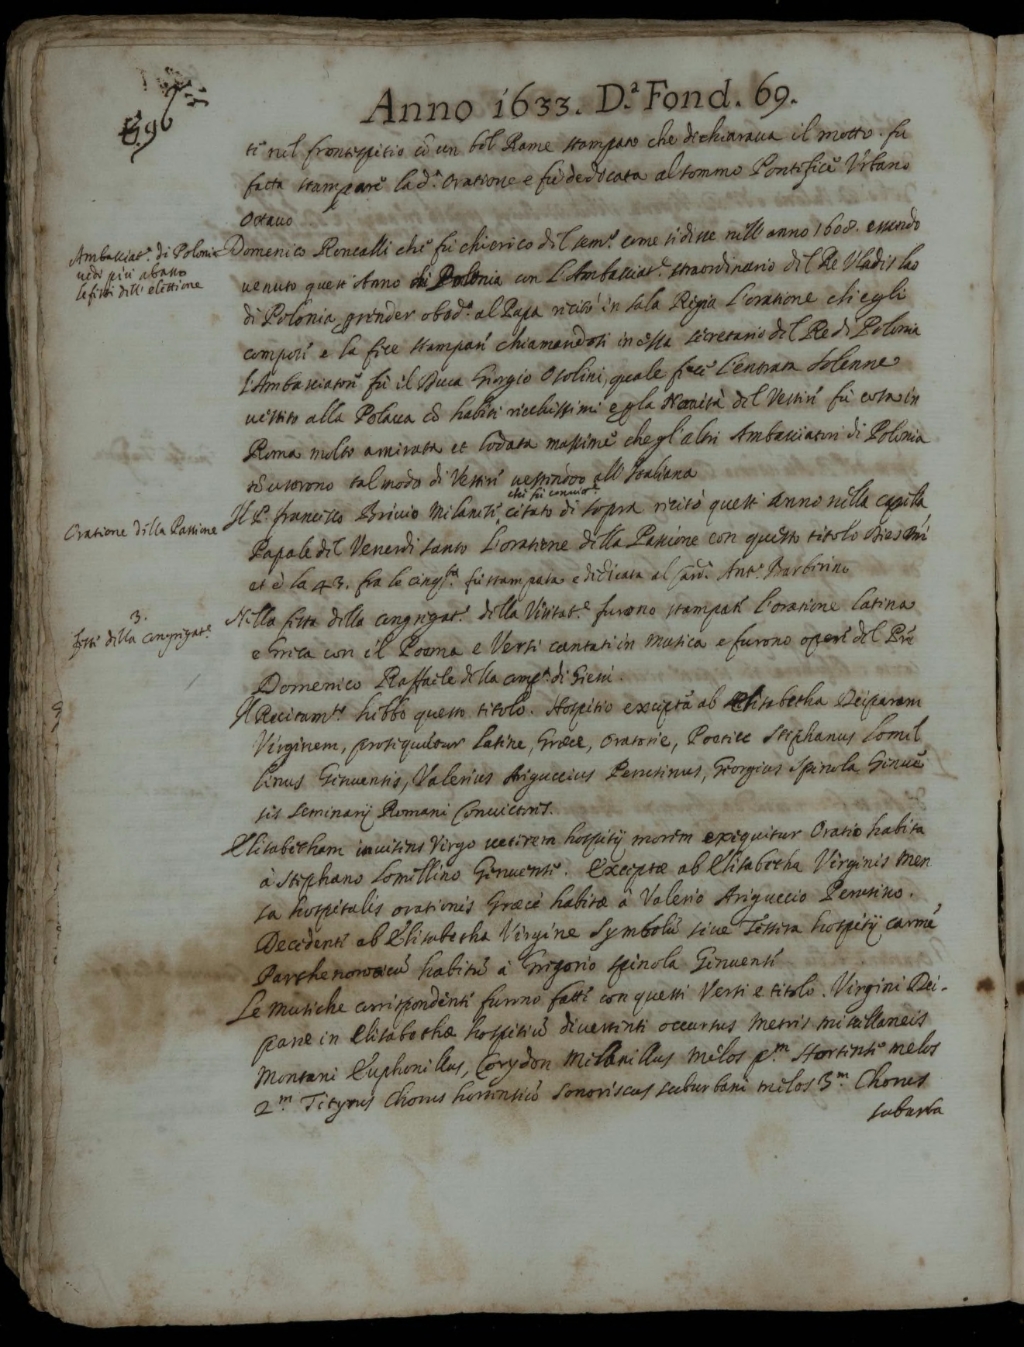 596
Anno 1633. D.ª Fond. 69.
ti nel frontispitio cō un bel Rame stampato che dichiaraua il motto. fu
fatta stampare la d.ª Oratione e fu dedicata al sommo Pontefice Vrbano
Octauo
Ambasciat.ᵉ di Polonia
uedi più abasso
le feste dell' elettione
Domenico Roncalli che fu chierico del sem.º come si disse nell' anno 1608. essendo
uenuto quest Anno di Polonia con L'Ambasciat.ᵉ straordinario del Re Vladislao
di Polonia p render obed.ª al Papa recitò in sala Regia L'oratione ch'egli
compose e la fece stampare chiamandosi in essa secretario del Re di Polonia
L'Ambasciatore fu il Duca Giorgio Osolini, quale fece L'entrata solenne
uestito alla Polacca cō habiti ricchissimi e p la Nouità del Vestire fu cosa in
Roma molto amirata et lodata massime che gl'altri Ambasciatori di Polonia
nō usorono tal modo di Vestire uestendoo all' Italiana
Oratione della Passione
Il P. francesco Briuio Milanese che fu conuit.ᵉ citato di sopra recitò quest anno nella capella
Papale del Venerdi santo L'oratione della Passione con questo titolo
et è la 43. fra le fu stampata e dedicata al Card. Ant.º Barberino
3.
feste della congregat.ᵉ
Nella festa della congregat.ᵉ della Visitat.ᵉ furono stampati l'oratione latina
e Greca con il Poema e Versi cantati in musica e furono opere del Pre
Domenico Raffaele della comp.ª di Giesù.
Il Recitam.ᵗᵒ hebbe questo titolo. Hospitio exceptā ab Elisabetha Deiparam
Virginem, prosequuntur Latine, Græce, oratorie, Poetice Stephanus Lomel
linus Genuensis, Valerius Ariguccius Perusinus, Georgius Spinola Genuē
sis Seminarij Romani Conuictores.
Elisabetham inuisens Virgo ueterem hospitij morem exequitur Oratio habita
à Stephano Lomellino Genuensi. Exceptæ ab Elisabetha Virginis men
sa hospitalis orationis Græcè habitæ à Valerio Ariguccio Perusino.
Decedenti ab Elisabetha Virgine Symbolū siue Tessera hospitij carmē
Parthenomicū habitū à Gregorio spinola Genuensi
Le musiche corrispondenti furono fatte con questi Versi e titolo. Virgini Dei-
paræ in Elisabethæ hospitiū diuertenti occursus metris miscellaneis
Montani Euphonillus, Corydon Melanillus melos p.ᵐ Hortensi melos
2.ᵐ Tityrus Chorus hortensiū Sonoriscus suburbani melos 3.ᵐ Chorus
suburba